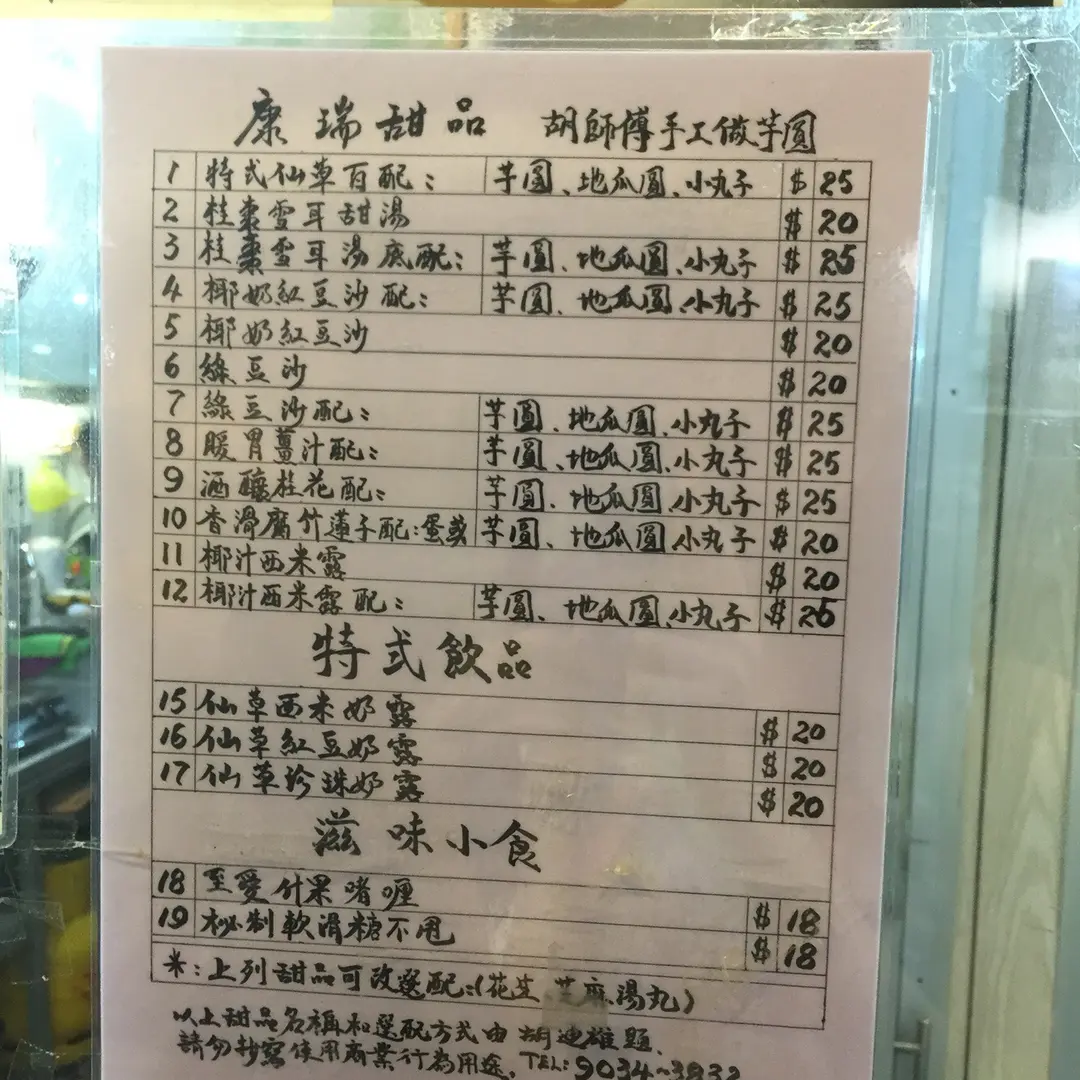 康瑞甜品 胡師傅手工做芋圓
1 特式仙草百配： 芋圓、地瓜圓、小丸子 $ 25
2 桂棗雪耳甜湯 $ 20
3 桂棗雪耳湯底配： 芋圓、地瓜圓、小丸子 $ 25
4 椰奶紅豆沙配： 芋圓、地瓜圓、小丸子 $ 25
5 椰奶紅豆沙 $ 20
6 綠豆沙 $ 20
7 綠豆沙配： 芋圓、地瓜圓、小丸子 $ 25
8 暖胃薑汁配： 芋圓、地瓜圓、小丸子 $ 25
9 酒釀桂花配： 芋圓、地瓜圓、小丸子 $ 25
10 香滑腐竹蓮子配：蛋或 芋圓、地瓜圓、小丸子 $ 20
11 椰汁西米露 $ 20
12 椰汁西米露配： 芋圓、地瓜圓、小丸子 $ 25
特式飲品
15 仙草西米奶露 $ 20
16 仙草紅豆奶露 $ 20
17 仙草珍珠奶露 $ 20
滋味小食
18 至愛什果啫喱 $ 18
19 祕制軟滑糖不甩 $ 18
米：上列甜品可改選配：(花生、芝麻湯丸)
以上甜品名稱和選配方式由胡迪雄題、
請勿抄寫使用商業行為用途。TEL：9034-3832